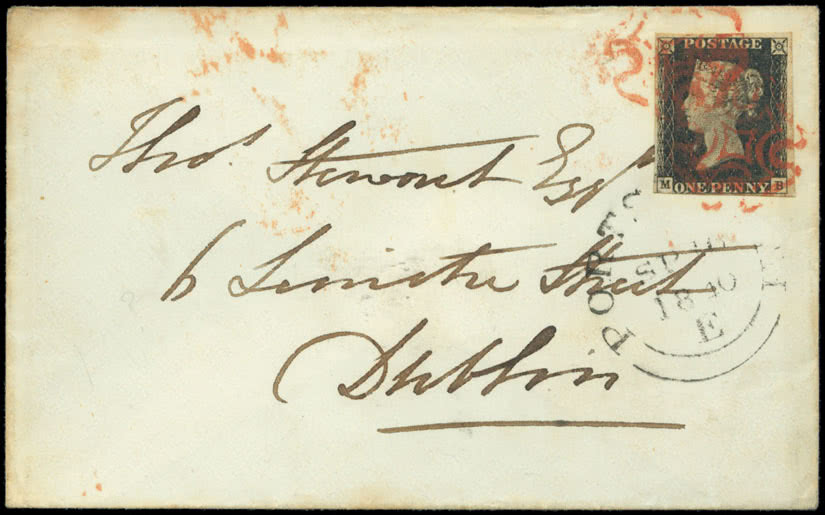 POSTAGE
M ONE PENNY B
Thos. Stewart Esqr
6 Leinster Street
Dublin
PORTS
SP
1840
E